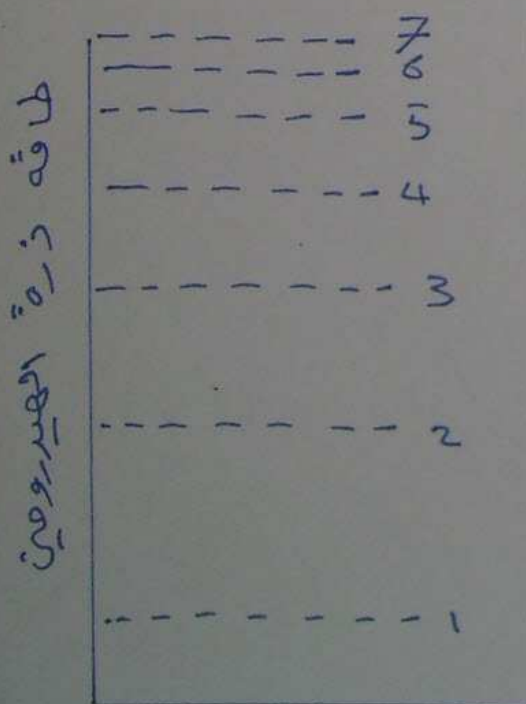 طاقة ذرة الهيدروجين
7
6
5
4
3
2
1